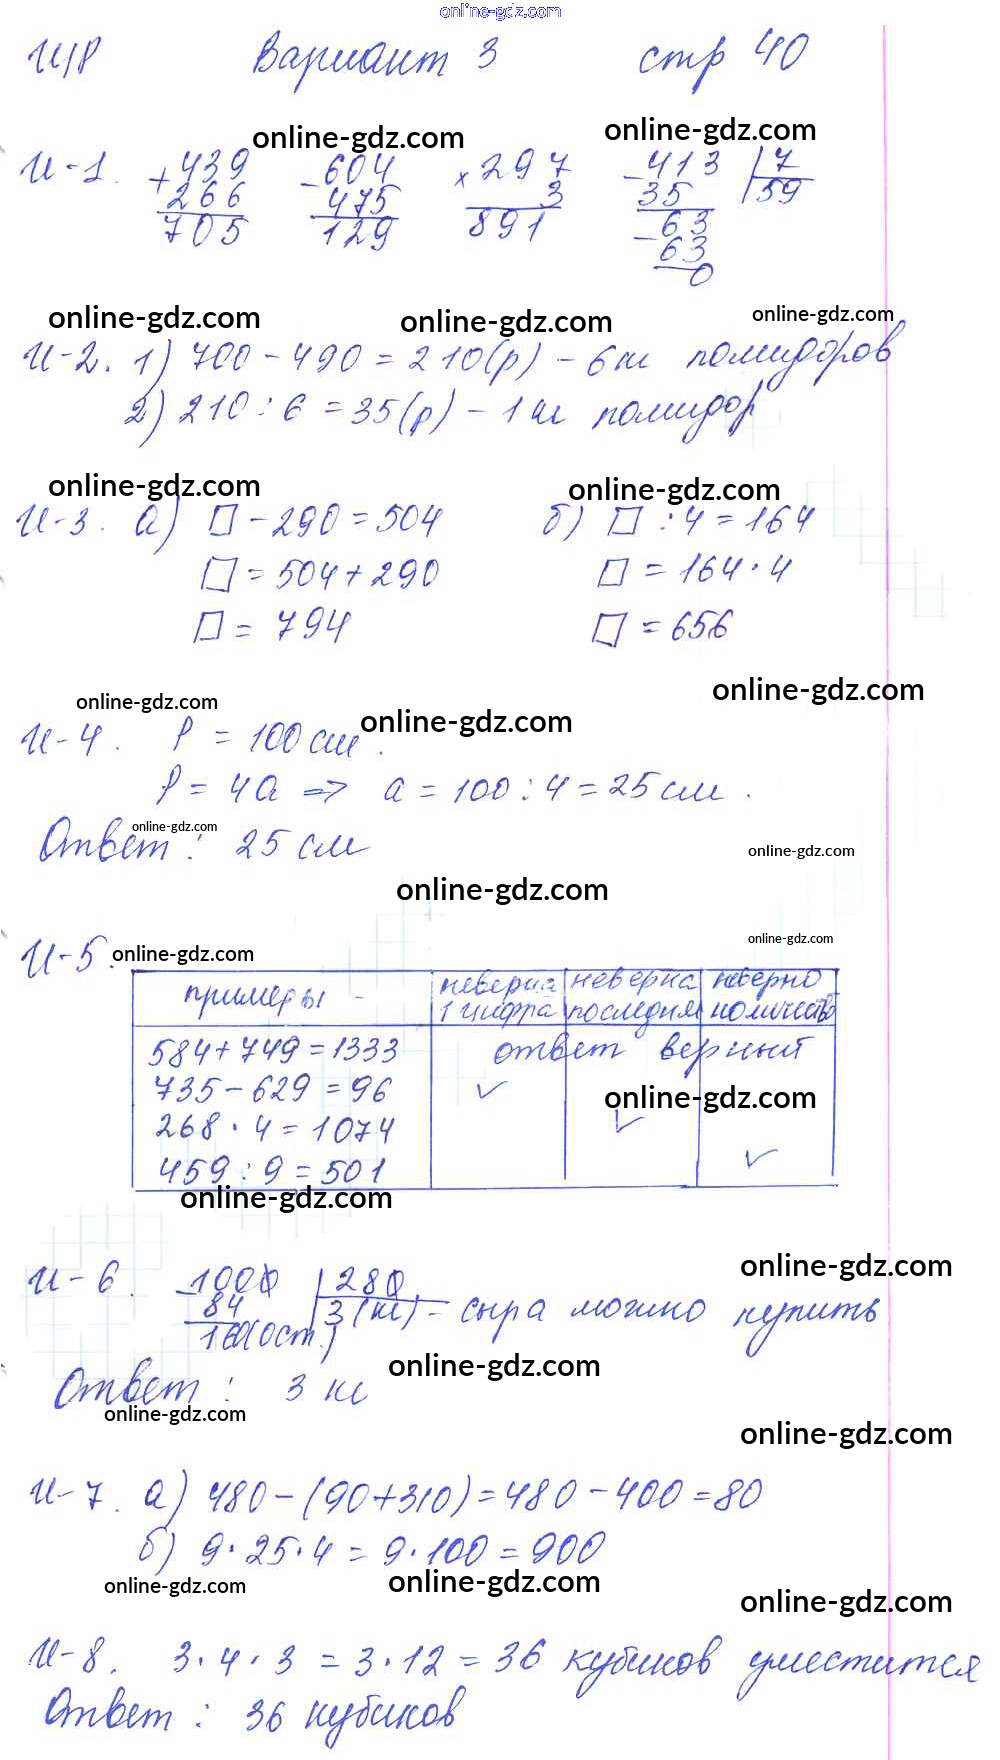 online-gdz.com
И/р Вариант 3 стр 40
online-gdz.com online-gdz.com
И-1. +439 -604 ×297 -413 |7
266 475 3 35 59
705 129 891 -63
63
0
online-gdz.com online-gdz.com online-gdz.com
И-2. 1) 700-490=210(р) - 6кг помидоров
2) 210:6=35(р) - 1кг помидор
online-gdz.com online-gdz.com
И-3. а) □-290=504 б) □:4=164
□=504+290 □=164·4
□=794 □=656
online-gdz.com online-gdz.com online-gdz.com
И-4. P=100см.
P=4a => a=100:4=25см.
online-gdz.com
Ответ: 25 см
online-gdz.com
online-gdz.com
online-gdz.com
И-5. online-gdz.com
примеры - неверна неверна неверно
1 цифра последняя количество
584+749=1333 ответ верный
735-629=96 ✓
online-gdz.com
268·4=1074 ✓
459:9=501 ✓
online-gdz.com
online-gdz.com
И-6. -1000 |280
84 3(кг) - сыра можно купить
160(ост.)
online-gdz.com
Ответ: 3 кг
online-gdz.com
online-gdz.com
И-7. а) 480-(90+310)=480-400=80
б) 9·25·4=9·100=900
online-gdz.com online-gdz.com online-gdz.com
И-8. 3·4·3=3·12=36 кубиков уместится
Ответ: 36 кубиков